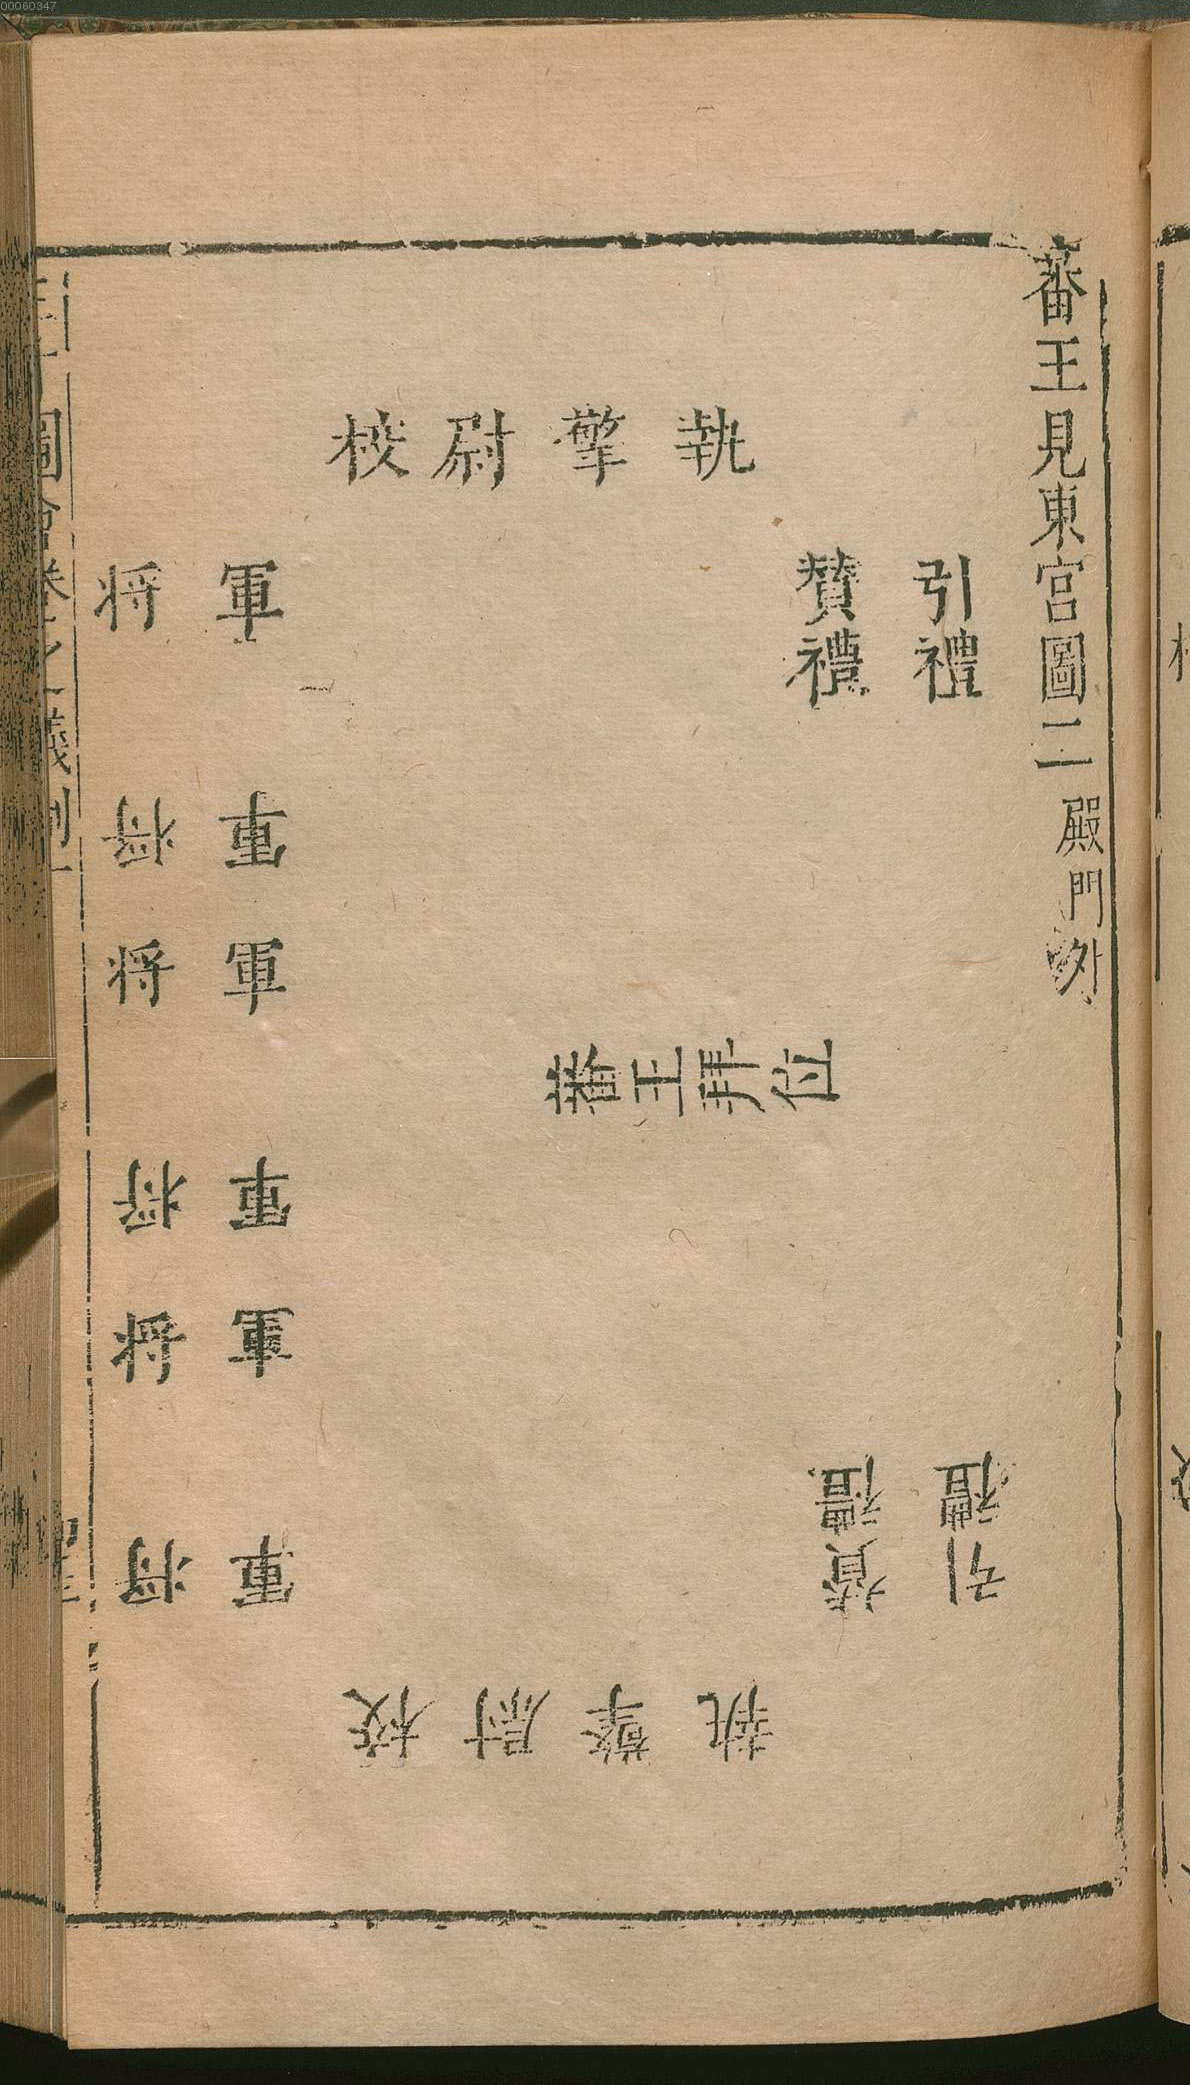 00060347
蕃王見東宮圖二 殿門外
引禮
贊禮
執擎尉校
軍將
軍將
軍將
蕃王拜位
軍將
軍將
軍將
引禮
贊禮
執擎尉校
圖會卷之 儀制